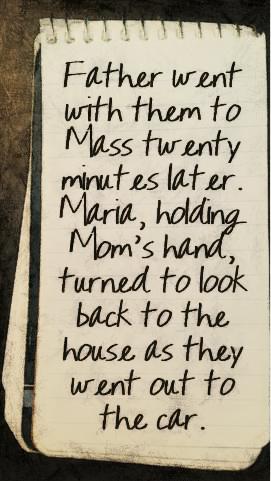 Father went
with them to
Mass twenty
minutes later.
Maria, holding
Mom's hand,
turned to look
back to the
house as they
went out to
the car.